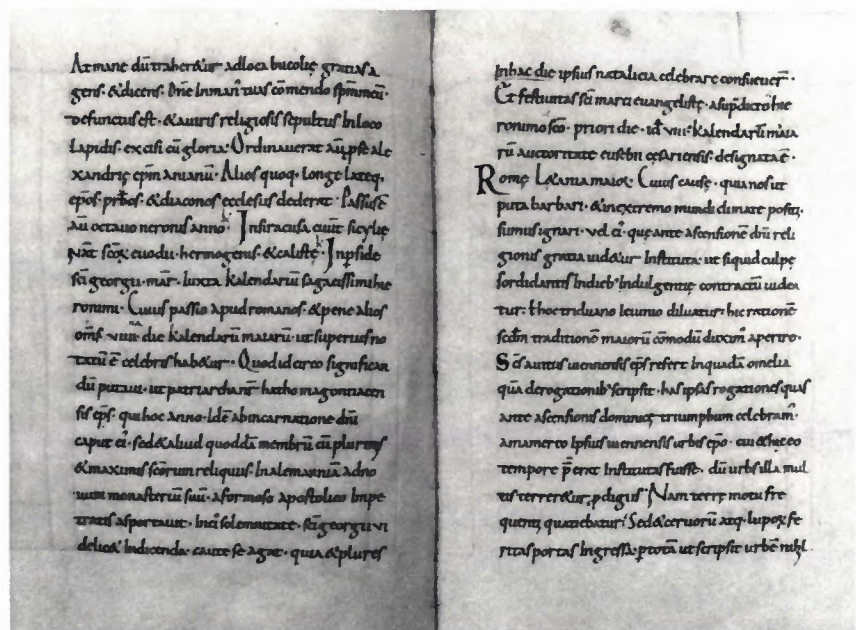 At mane dū traher&ur ad loca bucolię gratias a
gens · & dicens · Dn̄e In man' tuas cōmendo sp̄m meū ·
defunctus est · & a uiris religiosis sepultus In loco
Lapidis exciso cū gloria · Ordinauerat aut̄ p̄ se ale
xandrię ep̄m anianū · Alios quoq· longe lateq·
ep̄os · pr̄bos · & diaconos ecclesiis dederat · Passus ē
aū octauo neronis anno · In siracusa ciuit̄ sicylię
Nat̄ sc̄oꝝ euodii · hermogenis · & calistę · In pside
sc̄i georgii · mar̄ · Iuxta Kalendariū sagacissimi hie
ronimi · Cuius passio apud romanos · & pene alios
om̄s · viiii · die kalendarū maiarū · ut superius no
tatū ē celebris hab&ur · Quod idcirco significan
dū putaui · ut patriarchan̄t · hatho magontiacen
sis ep̄s · qui hoc anno · Id ē ab incarnatione dn̄i
caput ei' · sed & aliud quoddā membrū cū plurimis
& maximis sc̄orum reliquiis · In alemanniā ad no
uum monasteriū suū · a formoso apostolico Impe
tratis asportauit · In ei' solemnitate · sc̄i georgii vi
delic& Indicenda · caute se agat · quia & plures
In hac die ipsius natalicia celebrare consueuer̄ ·
Et festiuitas sc̄i marci euangelistę · a sup̄dicto hie
ronimo sc̄o · priori die · id ē viii · Kalendarū maia
rū auctoritate eusebii cesariensis · designata ē ·
Romę L&ania maior · Cuius causę · quia nos ut
puta barbari · & in extremo mundi climate positi,
sumus ignari · vel ei' · que ante ascensionē dn̄i reli
gionis gratia uid&ur Instituta · ut siquid culpę
sordidantis In dieb' Indulgentię contractū uidea
tur · hoc triduano Ieiunio diluatur · hic rationē
scd̄m traditionē maiorū cōmodū duxim' aperire ·
Sc̄s auitus uiennensis ep̄s refert in quadā omelia
quā de rogationib' scripsit · has ipsas rogationes quas
ante ascensionis dominicę triumphum celebram' ·
a mamerto Ipsius uiennensis urbis ep̄o · cui & hic eo
tempore p̄erat Institutas fuisse · dū urbs illa mul
tis terrer&ur p̄digiis · Nam terrę motu fre
quenti quatiebatur · Sed & ceruorū atq· lupoꝝ fe
ritas portas Ingressa · p̄ totā ut scripsit urbē nihil